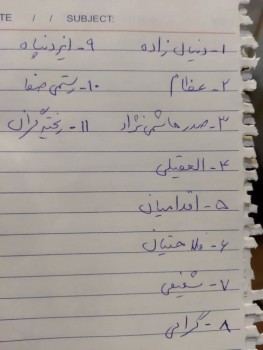 DATE / / SUBJECT:
۱- دنیال زاده ۹- ایزدپناه
۲- عظام ۱۰- رستمی صفا
۳- صدر هاشمی نژاد ۱۱- ریخته گران
۴- العقیلی
۵- اقدامیان
۶- فلاحتیان
۷- شفیعی
۸- گرامی